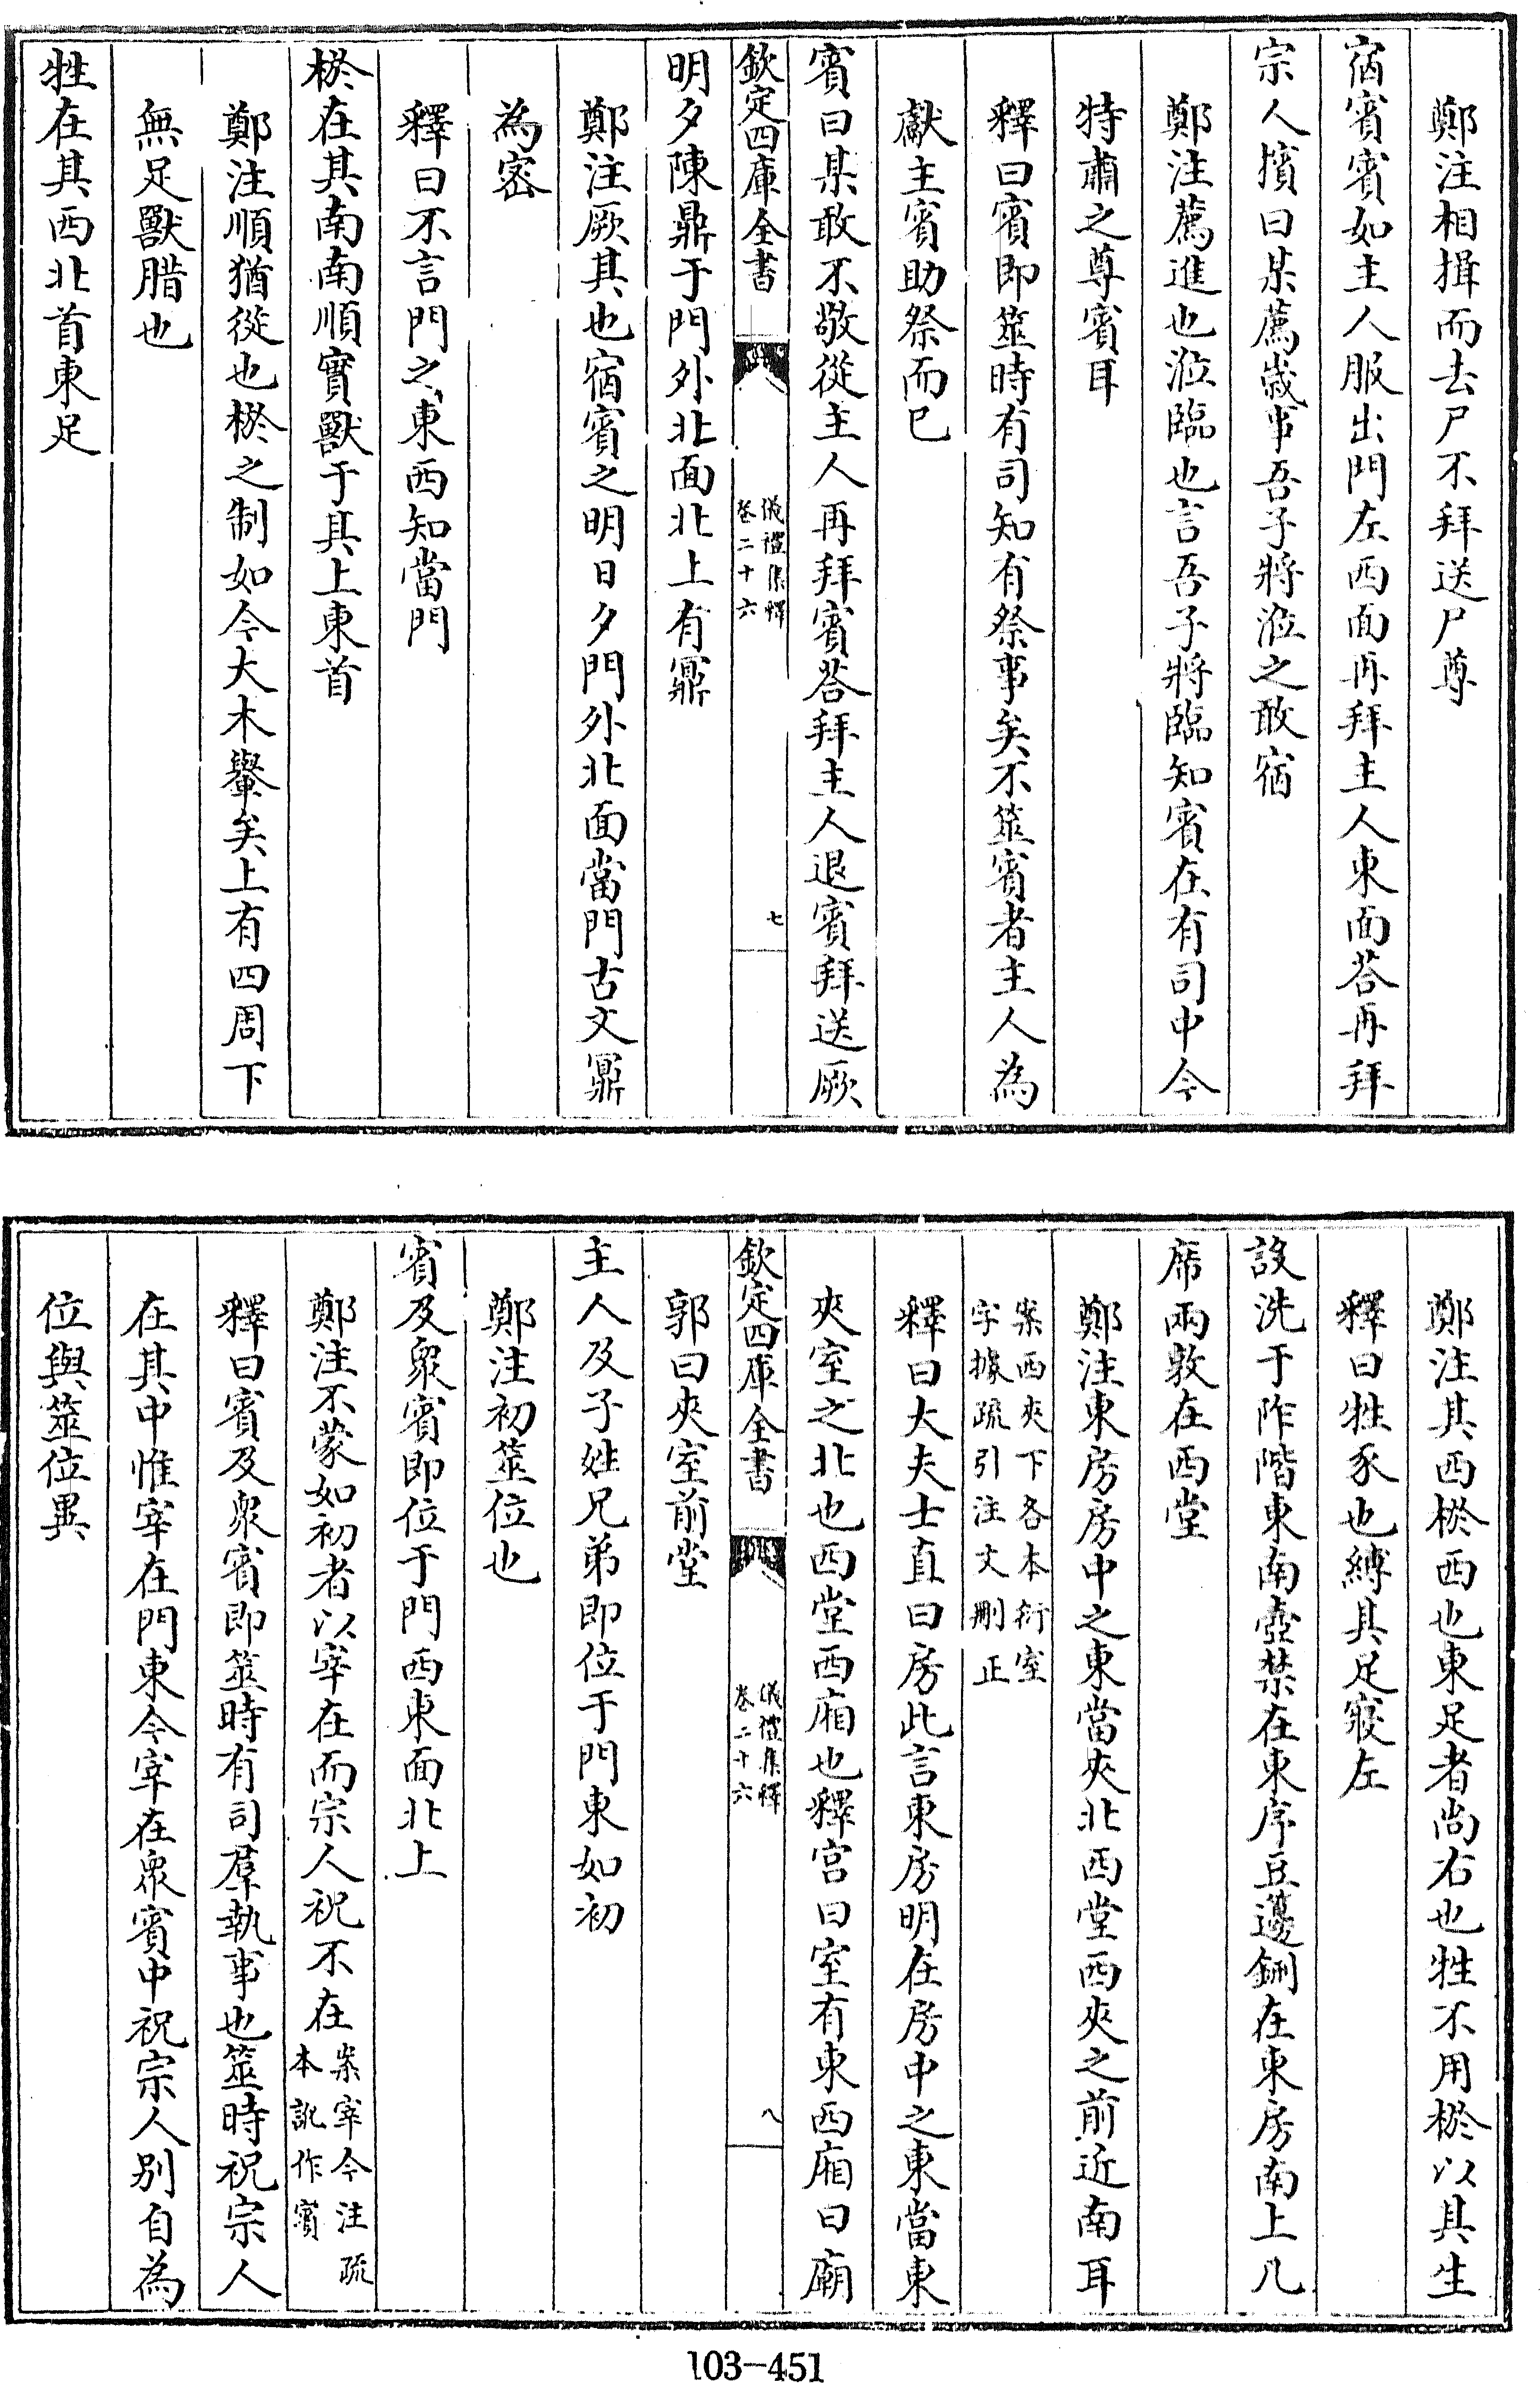 鄭注相揖而去尸不拜送尸尊
宿賓賓如主人服出門左西面再拜主人東面荅再拜
宗人擯曰某薦歲事吾子將涖之敢宿
鄭注薦進也涖臨也言吾子將臨知賓在有司中今
特肅之尊賓耳
釋曰賓即筮時有司知有祭事矣不筮賓者主人為
獻主賓助祭而已
賓曰某敢不敬從主人再拜賓荅拜主人退賓拜送厥
欽定四庫全書
儀禮集釋
卷二十六
七
明夕陳鼎于門外北面北上有鼏
鄭注厥其也宿賓之明日夕門外北面當門古文鼏
為密
釋曰不言門之東西知當門
棜在其南南順實獸于其上東首
鄭注順猶從也棜之制如今大木轝矣上有四周下
無足獸腊也
牲在其西北首東足
鄭注其西棜西也東足者尚右也牲不用棜以其生
釋曰牲豕也縛其足寢左
設洗于阼階東南壺禁在東序豆籩鉶在東房南上几
席兩敦在西堂
鄭注東房房中之東當夾北西堂西夾之前近南耳
案西夾下各本衍室
字據疏引注文刪正
釋曰大夫士直曰房此言東房明在房中之東當東
夾室之北也西堂西廂也釋宫曰室有東西廂曰廟
欽定四庫全書
儀禮集釋
卷二十六
八
郭曰夾室前堂
主人及子姓兄弟即位于門東如初
鄭注初筮位也
賓及衆賓即位于門西東面北上
鄭注不蒙如初者以宰在而宗人祝不在
案宰今注疏
本訛作賓
釋曰賓及衆賓即筮時有司羣執事也筮時祝宗人
在其中惟宰在門東今宰在衆賓中祝宗人别自為
位與筮位異
103-451